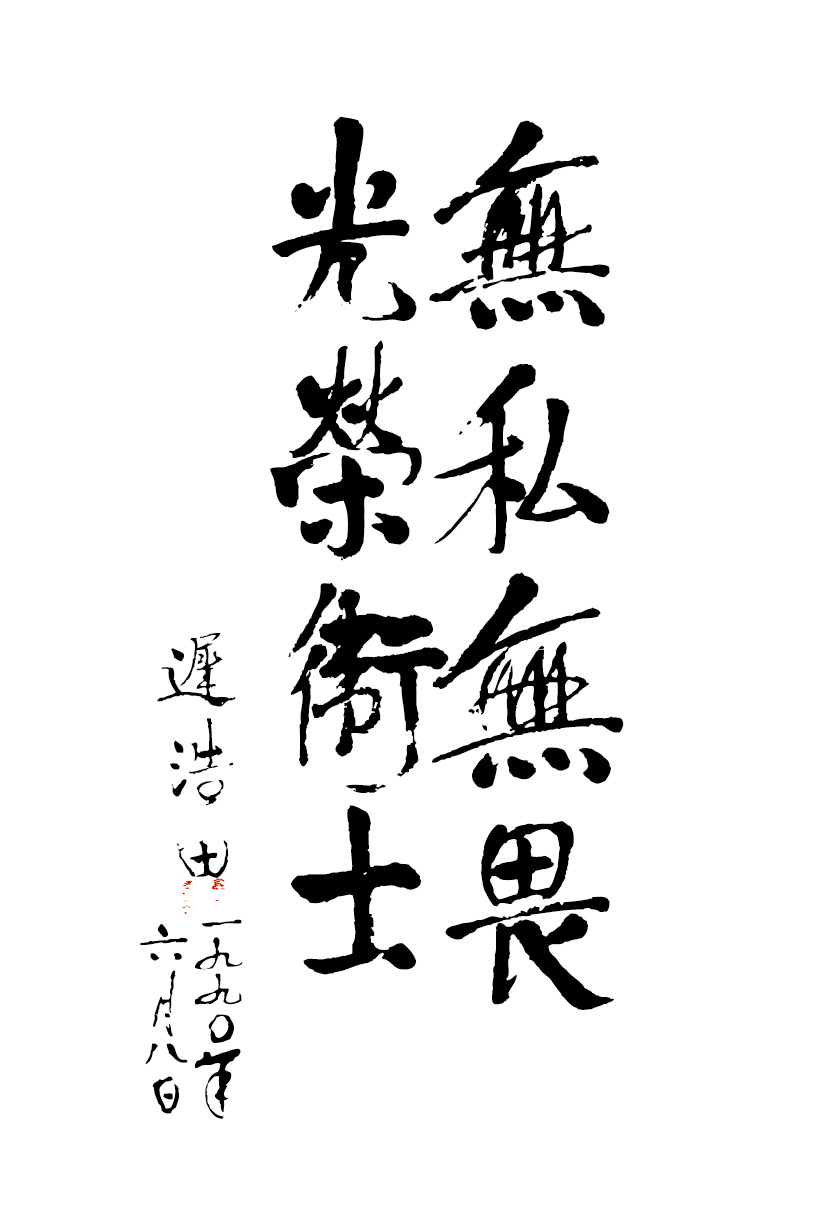 無私無畏
光榮衛士
遲浩田
一九九〇年
六月八日